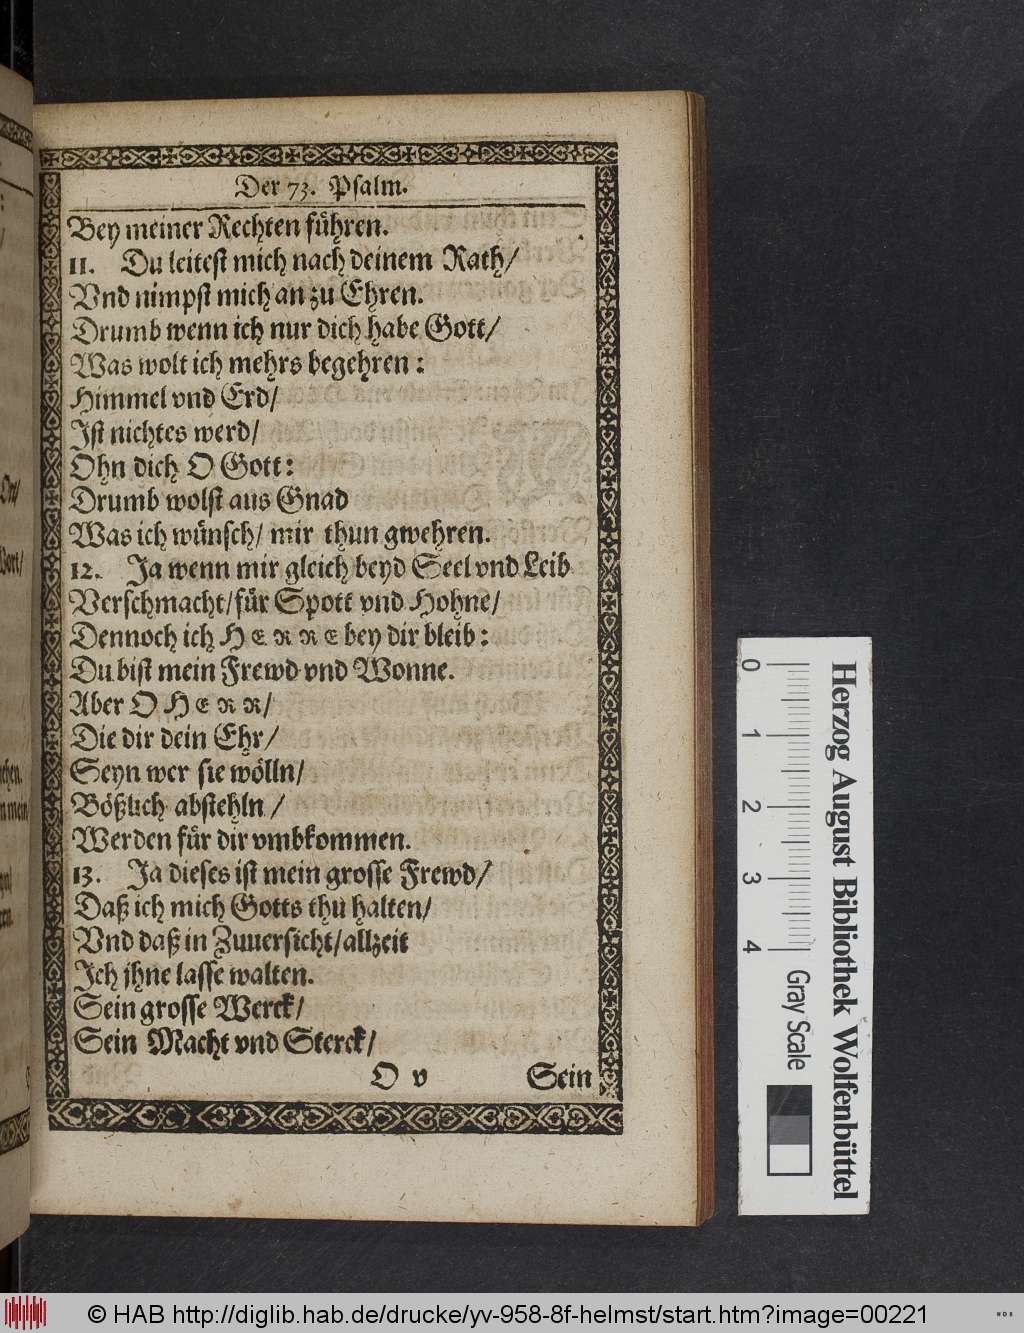 Der 73. Psalm.
Bey meiner Rechten führen.
11. Du leitest mich nach deinem Rath/
Vnd nimpst mich an zu Ehren.
Drumb wenn ich nur dich habe Gott/
Was wolt ich mehrs begehren:
Himmel vnd Erd/
Ist nichtes werd/
Ohn dich O Gott:
Drumb wolst aus Gnad
Was ich wünsch/ mir thun gwehren.
12. Ja wenn mir gleich beyd Seel vnd Leib
Verschmacht/für Spott vnd Hohne/
Dennoch ich HERRE bey dir bleib:
Du bist mein Frewd vnd Wonne.
Aber O HERR/
Die dir dein Ehr/
Seyn wer sie wölln/
Bößlich abstehln/
Werden für dir vmbkommen.
13. Ja dieses ist mein grosse Frewd/
Daß ich mich Gotts thu halten/
Vnd daß in Zuuersicht/allzeit
Ich jhne lasse walten.
Sein grosse Werck/
Sein Macht vnd Sterck/
O v Sein
0 1 2 3 4 Gray Scale
Herzog August Bibliothek Wolfenbüttel
© HAB http://diglib.hab.de/drucke/yv-958-8f-helmst/start.htm?image=00221